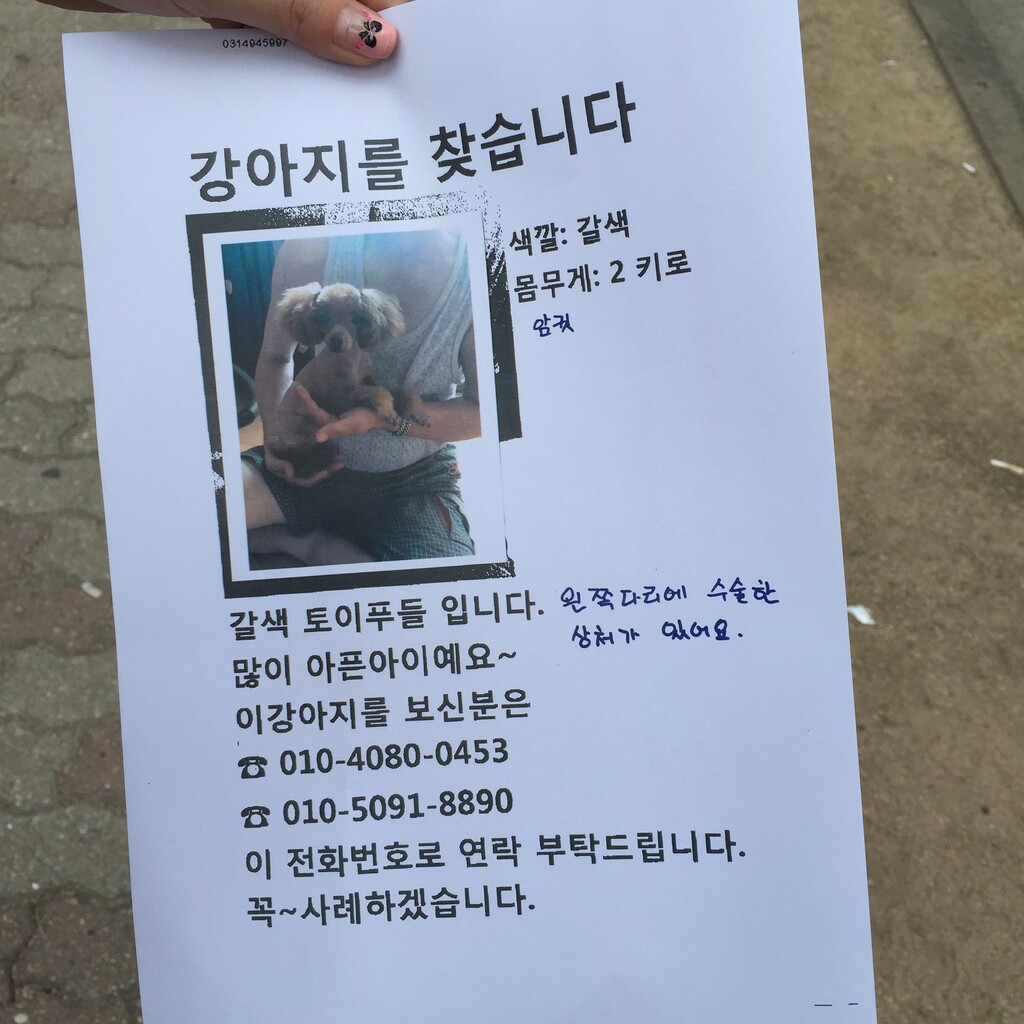 0314945997
강아지를 찾습니다
색깔: 갈색
몸무게: 2 키로
암컷
갈색 토이푸들 입니다. 왼쪽다리에 수술한
상처가 있어요.
많이 아픈아이예요~
이강아지를 보신분은
☎ 010-4080-0453
☎ 010-5091-8890
이 전화번호로 연락 부탁드립니다.
꼭~사례하겠습니다.